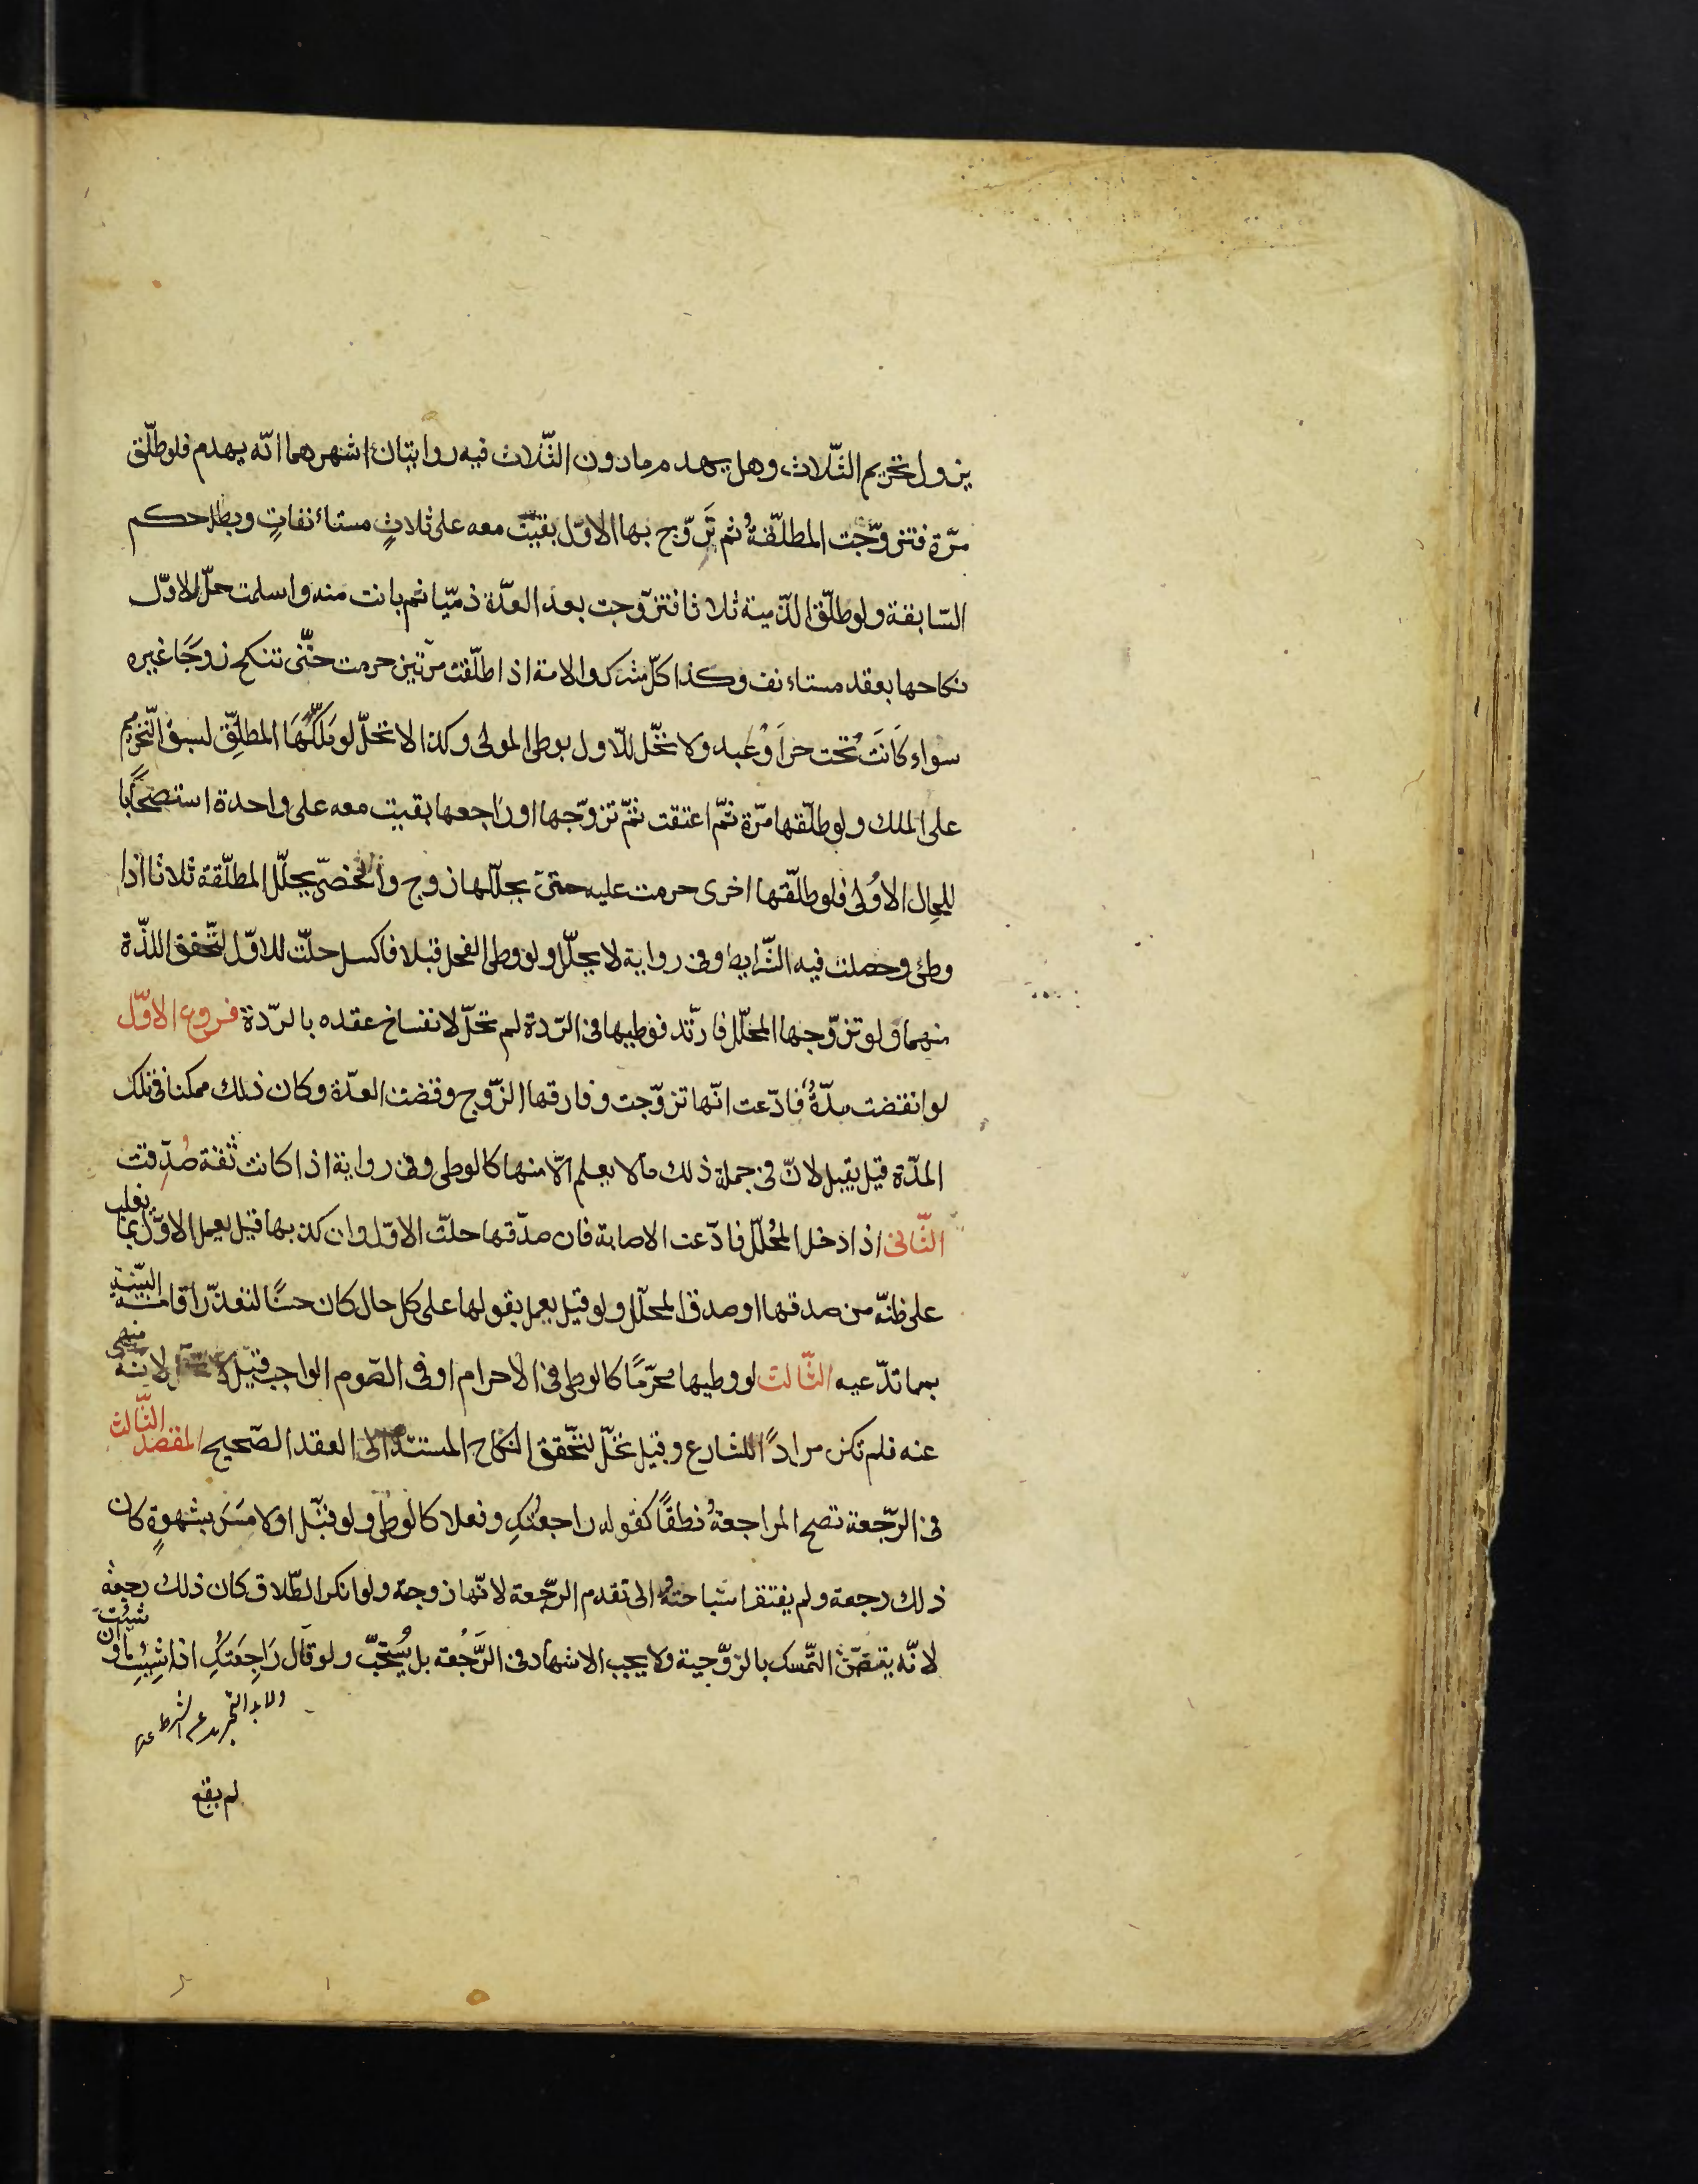 يزول تحريم الثّلاث وهل يهدم مادون الثّلاث فيه روايتان اشهرهما انّه يهدم فلو طلّق
مرّة فتزوّجت المطلّقةُ ثم تَزوّج بها الاوّل بقيَت معه على ثلاثٍ مستانفاتٍ وبطل حكم
السّابقة ولو طلّق الذّمية ثلاثا فتزّوجت بعد العدّة ذمّيا ثم بانت منه واسلمت حلّ للاوّل
نكاحها بعقد مستانف وكذا كلّ مشرك والامة اذا طلّقت مرّتين حرمت حتّى تنكح زوجًا غيره
سواء كانَت تحت حرّ اَوْ عبد ولا تحّل للاول بوطى المولى وكذا لا تحلّ لو مَلكَهَا المطلِّق لسبق التّحريم
على الملك ولو طلّقها مرّة ثمّ اعتقت ثمّ تزوّجها او راجعها بقيت معه على واحدة استصحابًا
للحال الاُولى فلو طلّقها اخرى حرمت عليه حتىّ يحلّلها زوج والخصىّ يحلّل المطلّقة ثلاثا اذا
وطئ وحصلت فيه الشّرايط وفى رواية لا يحلّل ولو وطى الفحل قبلا فاكسل حلّت للاوّل لتّحقق اللذّة
منهما ولو تزوّجها المحلّل فارتّد فوطيها فى الرّدة لم تحلّ لانفساخ عقده بالرّدة فروع الاوّل
لو انقضت مدّةٌ فادّعت انّها تزوّجت وفارقها الزّوج وقضت العدّة وكان ذلك ممكنا فى تلك
المدّة قيل يقبل لانّ فى جملة ذلك مالا يعلم الّا منها كالوطى وفى رواية اذا كانت ثقة صُدّقت
الثّانى اذا دخل المحُلّل فادّعت الاصابة فان صدّقها حلّت الاوّل وان كذبها قيل يعمل الاوّل بما يغلب
على ظنّه من صدقها او صدق المحلّل ولو قيل يعمل بقولها على كل حال كان حسنًا لتعذّر اقامة البيّنة
بما تدّعيه الثّالث لو وطيها محرّمًا كالوطى فى الاحرام او فى الصّوم الواجب قيل لا تحل لانّه منهى
عنه فلم تكن مرادًا للشارع وقيل تحلّ لتحّقق النكاح المستند الى العقد الصّحيح المقصد الثّالث
فى الرّجعة تصح المراجعةُ نطقًا كقوله راجعتُكِ وفعلا كالوطى ولو قبّل او لامسَ بشهوةٍ كان
ذلك رجعة ولم يفتقر استباحته الى تقدم الرّجعة لانّها زوجة ولو انكر الطّلاق كان ذلك رجعة
لانّه يتضمّن التّمسك بالزوّجية ولا يجب الاشهاد فى الرَّجُعة بل يُستحّب ولو قال رَاجعَتكُ اذا شِيت او ان شئت
لم يقع